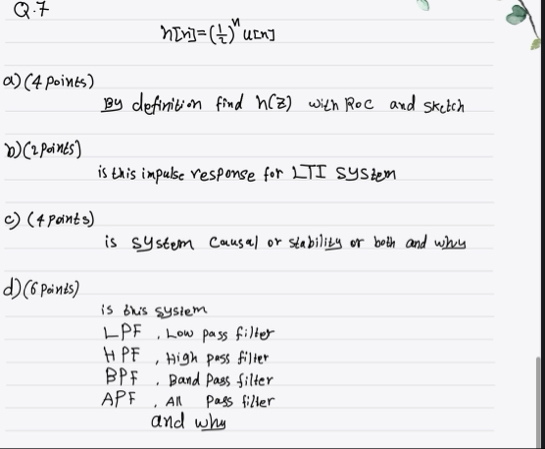 Q.7
h[n]=(1/2)^n u[n]
a) (4 points)
By definition find h(z) with RoC and sketch
b) (2 points)
is this impulse response for LTI system
c) (4 points)
is system causal or stability or both and why
d) (6 points)
is this system
LPF , Low pass filter
HPF , High pass filter
BPF , Band Pass filter
APF , All Pass filter
and why